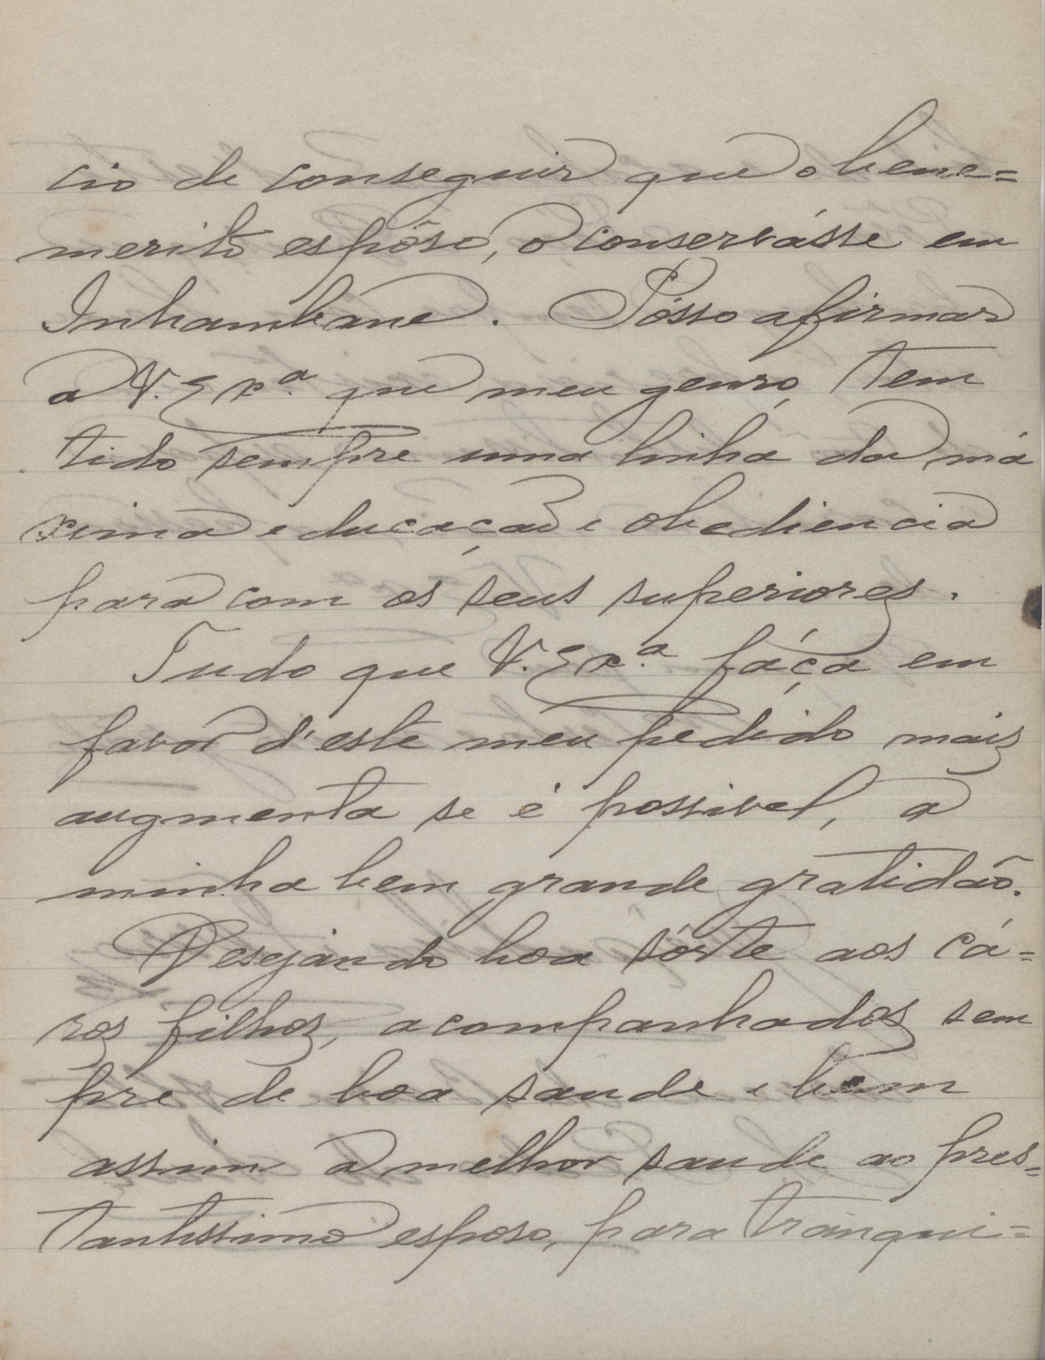 cio de conseguir que o bene=
merito espôso, o conservásse em
Inhambane. Pósso afirmar
a V. Exª. que meu genro, tem
tido sempre uma linha da má
xima educação e obediencia
para com os seus superiores.
Tudo que V. Exª. fáça em
favor d'este meu pedido mais
augmenta se é possivel, a
minha bem grande gratidão.
Desejando boa sórte aos cá=
ros filhos, acompanhados sem
pre de boa saude e bem
assim a melhor saude ao pres=
tantissimo esposo, para tranqui=